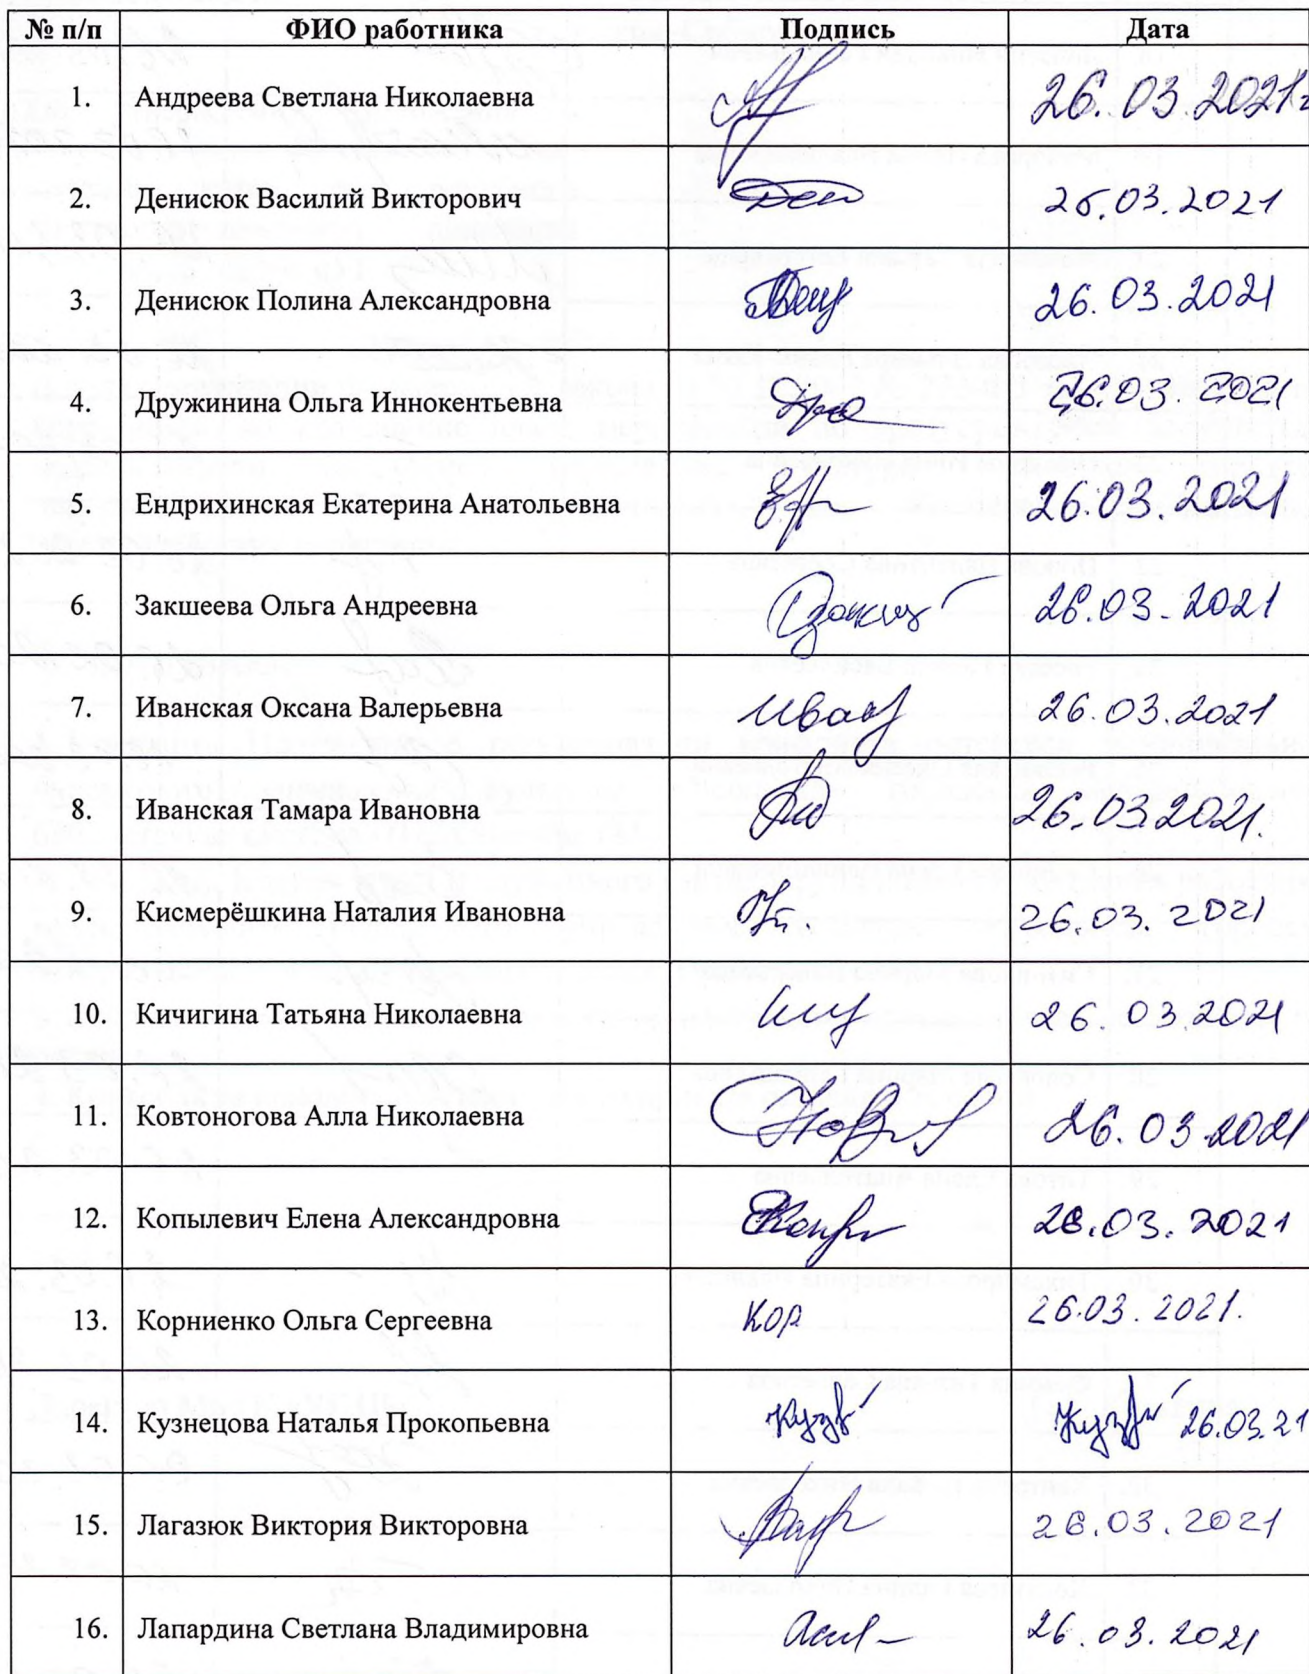 № п/п ФИО работника Подпись Дата
1. Андреева Светлана Николаевна 26.03.2021г
2. Денисюк Василий Викторович 26.03.2021
3. Денисюк Полина Александровна 26.03.2021
4. Дружинина Ольга Иннокентьевна 26.03.2021
5. Ендрихинская Екатерина Анатольевна 26.03.2021
6. Закшеева Ольга Андреевна 26.03.2021
7. Иванская Оксана Валерьевна 26.03.2021
8. Иванская Тамара Ивановна 26.03.2021.
9. Кисмерёшкина Наталия Ивановна 26.03.2021
10. Кичигина Татьяна Николаевна 26.03.2021
11. Ковтоногова Алла Николаевна 26.03.2021
12. Копылевич Елена Александровна 26.03.2021
13. Корниенко Ольга Сергеевна Кор 26.03.2021.
14. Кузнецова Наталья Прокопьевна 26.03.21
15. Лагазюк Виктория Викторовна 26.03.2021
16. Лапардина Светлана Владимировна 26.03.2021